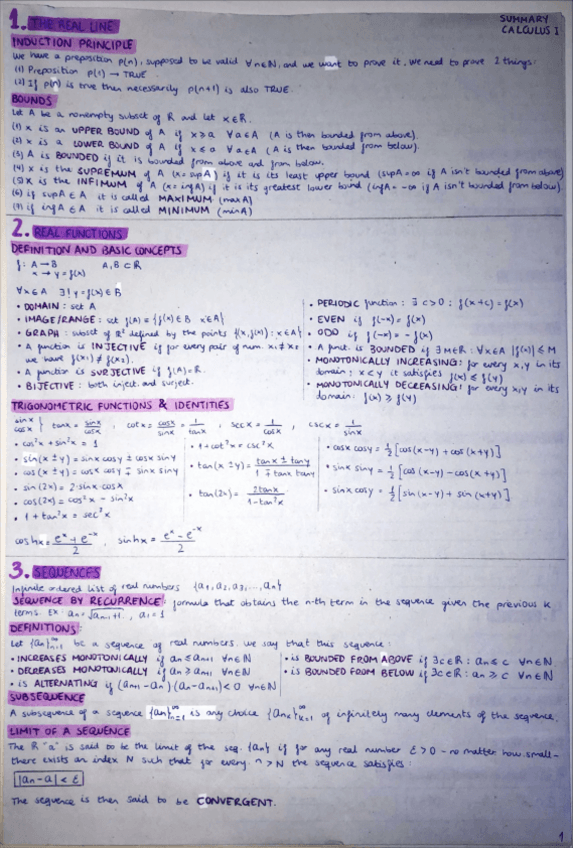 SUMMARY
CALCULUS I
1. THE REAL LINE
INDUCTION PRINCIPLE
We have a preposition p(n), supposed to be valid ∀n∈N, and we want to prove it. We need to prove 2 things:
(1) Preposition p(1) → TRUE
(2) If p(n) is true then necessarily p(n+1) is also TRUE.
BOUNDS
Let A be a nonempty subset of R and let x∈R.
(1) x is an UPPER BOUND of A if x⩾a ∀a∈A (A is then bounded from above).
(2) x is a LOWER BOUND of A if x⩽a ∀a∈A (A is then bounded from below).
(3) A is BOUNDED if it is bounded from above and from below.
(4) x is the SUPREMUM of A (x=supA) if it is its least upper bound (supA=∞ if A isn't bounded from above)
(5) x is the INFIMUM of A (x=infA) if it is its greatest lower bound (infA=-∞ if A isn't bounded from below)
(6) if supA∈A it is called MAXIMUM (maxA)
(7) if infA∈A it is called MINIMUM (minA)
2. REAL FUNCTIONS
DEFINITION AND BASIC CONCEPTS
f: A→B A,B⊂R
x→y=f(x)
∀x∈A ∃!y=f(x)∈B
• DOMAIN: set A
• IMAGE/RANGE: set f(A)={f(x)∈B x∈A}
• GRAPH: subset of R² defined by the points {(x,f(x)): x∈A}
• A function is INJECTIVE if for every pair of num. x₁≠x₂
we have f(x₁)≠f(x₂).
• A function is SURJECTIVE if f(A)=R.
• BIJECTIVE: both inject. and surject.
• PERIODIC function: ∃c>0: f(x+c)=f(x)
• EVEN if f(-x)=f(x)
• ODD if f(-x)=-f(x)
• A funct. is BOUNDED if ∃M∈R: ∀x∈A |f(x)|≤M
• MONOTONICALLY INCREASING: for every x,y in its
domain; x<y it satisfies f(x)≤f(y)
• MONOTONICALLY DECREASING: for every x,y in its
domain: f(x)⩾f(y)
TRIGONOMETRIC FUNCTIONS & IDENTITIES
sinx cosx} tanx = sinx/cosx, cotx = cosx/sinx = 1/tanx, secx = 1/cosx, cscx = 1/sinx
• cos²x + sin²x = 1
• sin(x±y) = sinx cosy ± cosx siny
• cos(x±y) = cosx cosy ∓ sinx siny
• sin(2x) = 2·sinx cosx
• cos(2x) = cos²x - sin²x
• 1+tan²x = sec²x
• 1+cot²x = csc²x
• tan(x±y) = tanx ± tany / 1 ∓ tanx tany
• tan(2x) = 2tanx / 1-tan²x
• cosx cosy = 1/2 [cos(x-y) + cos(x+y)]
• sinx siny = 1/2 [cos(x-y) - cos(x+y)]
• sinx cosy = 1/2 [sin(x-y) + sin(x+y)]
coshx = eˣ+e⁻ˣ / 2 , sinhx = eˣ-e⁻ˣ / 2
3. SEQUENCES
Infinite ordered list of real numbers {a₁,a₂,a₃,...,aₙ}
SEQUENCE BY RECURRENCE: formula that obtains the n-th term in the sequence given the previous k
terms. Ex: aₙ=√aₙ₋₁+1, a₁=1
DEFINITIONS:
Let {aₙ}∞ₙ₌₁ be a sequence of real numbers. We say that this sequence:
• INCREASES MONOTONICALLY if aₙ≤aₙ₊₁ ∀n∈N
• DECREASES MONOTONICALLY if aₙ⩾aₙ₊₁ ∀n∈N
• is ALTERNATING if (aₙ₊₁-aₙ)(aₙ-aₙ₋₁)<0 ∀n∈N
• is BOUNDED FROM ABOVE if ∃c∈R: aₙ≤c ∀n∈N
• is BOUNDED FROM BELOW if ∃c∈R: aₙ⩾c ∀n∈N
SUBSEQUENCE
A subsequence of a sequence {aₙ}∞ₙ₌₁ is any choice {aₙₖ}∞ₖ₌₁ of infinitely many elements of the sequence.
LIMIT OF A SEQUENCE
The R "a" is said to be the limit of the seq. {aₙ} if for any real number ε>0 -no matter how small-
there exists an index N such that for every n>N the sequence satisfies:
|aₙ-a|<ε
The sequence is then said to be CONVERGENT.
1